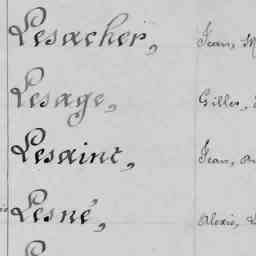 Lesacher, Jean, M
Lesage, Gilles,
Lesaint, Jean,
Lesné, Alexis,